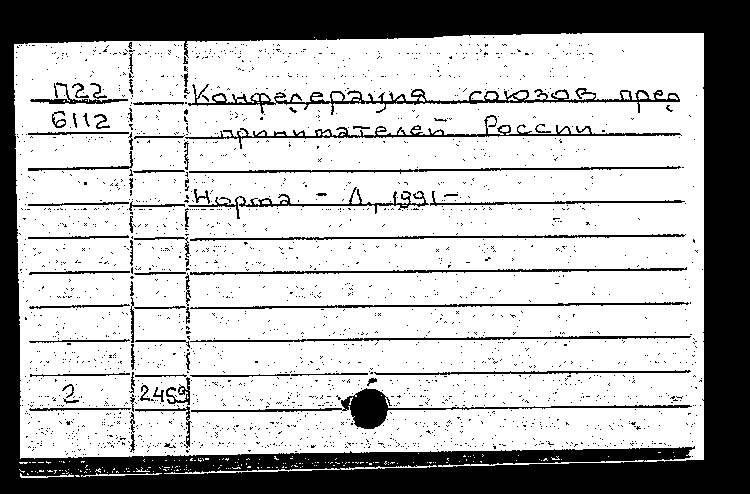 П22
6112
Конфедерация союзов пред
принимателей России.
Норма. - Л., 1991-
2 2469